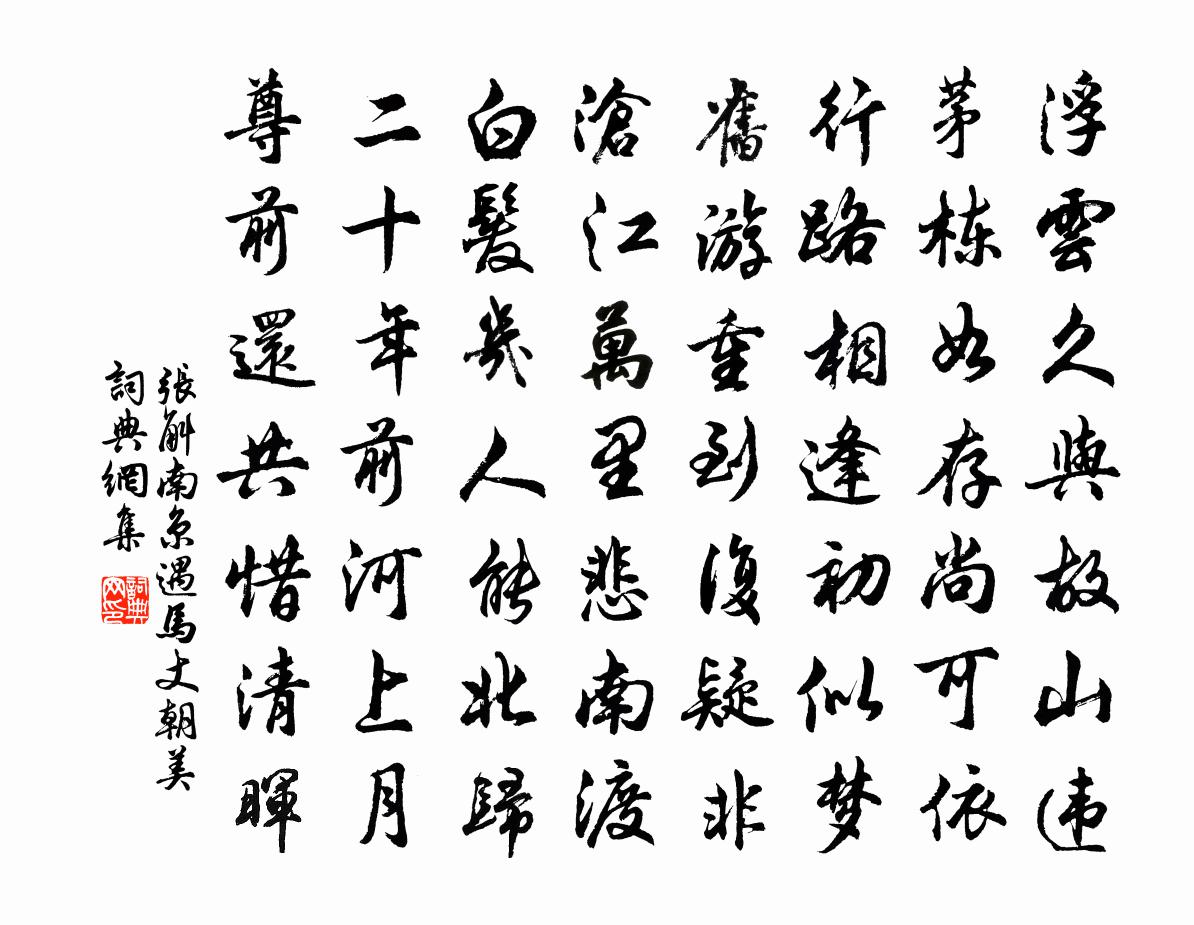 浮雲久與故山违
茅栋如存尚可依
行路相逢初似梦
舊游重到復疑非
滄江萬里悲南渡
白髮幾人能北歸
二十年前河上月
尊前還共惜清暉
張斛南京遇馬丈朝美
詞典網集
詞典网印